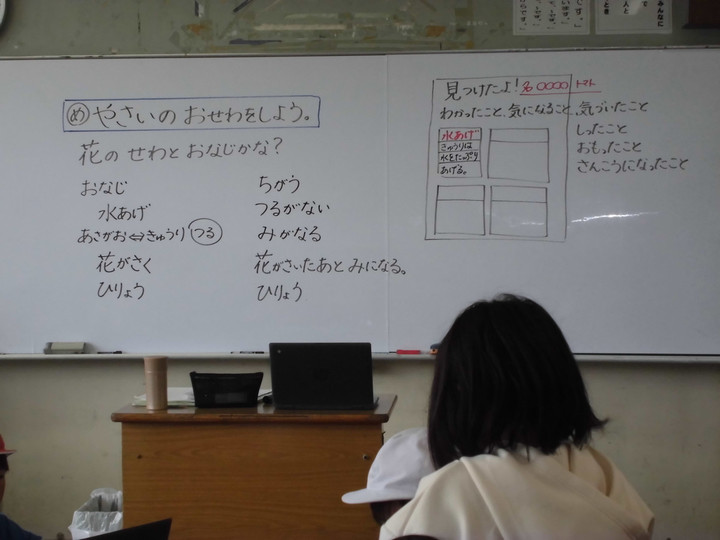 め やさいの おせわをしよう。
花の せわと おなじかな?
おなじ
水あげ
あさがお⇔きゅうり つる
花がさく
ひりょう
ちがう
つるがない
みがなる
花がさいたあと みになる。
ひりょう
見つけたよ! 名〇〇〇〇 トマト
わかったこと、気になること、気づいたこと
しったこと
おもったこと
さんこうになったこと
水あげ
きゅうりは
水をたっぷり
あげる。